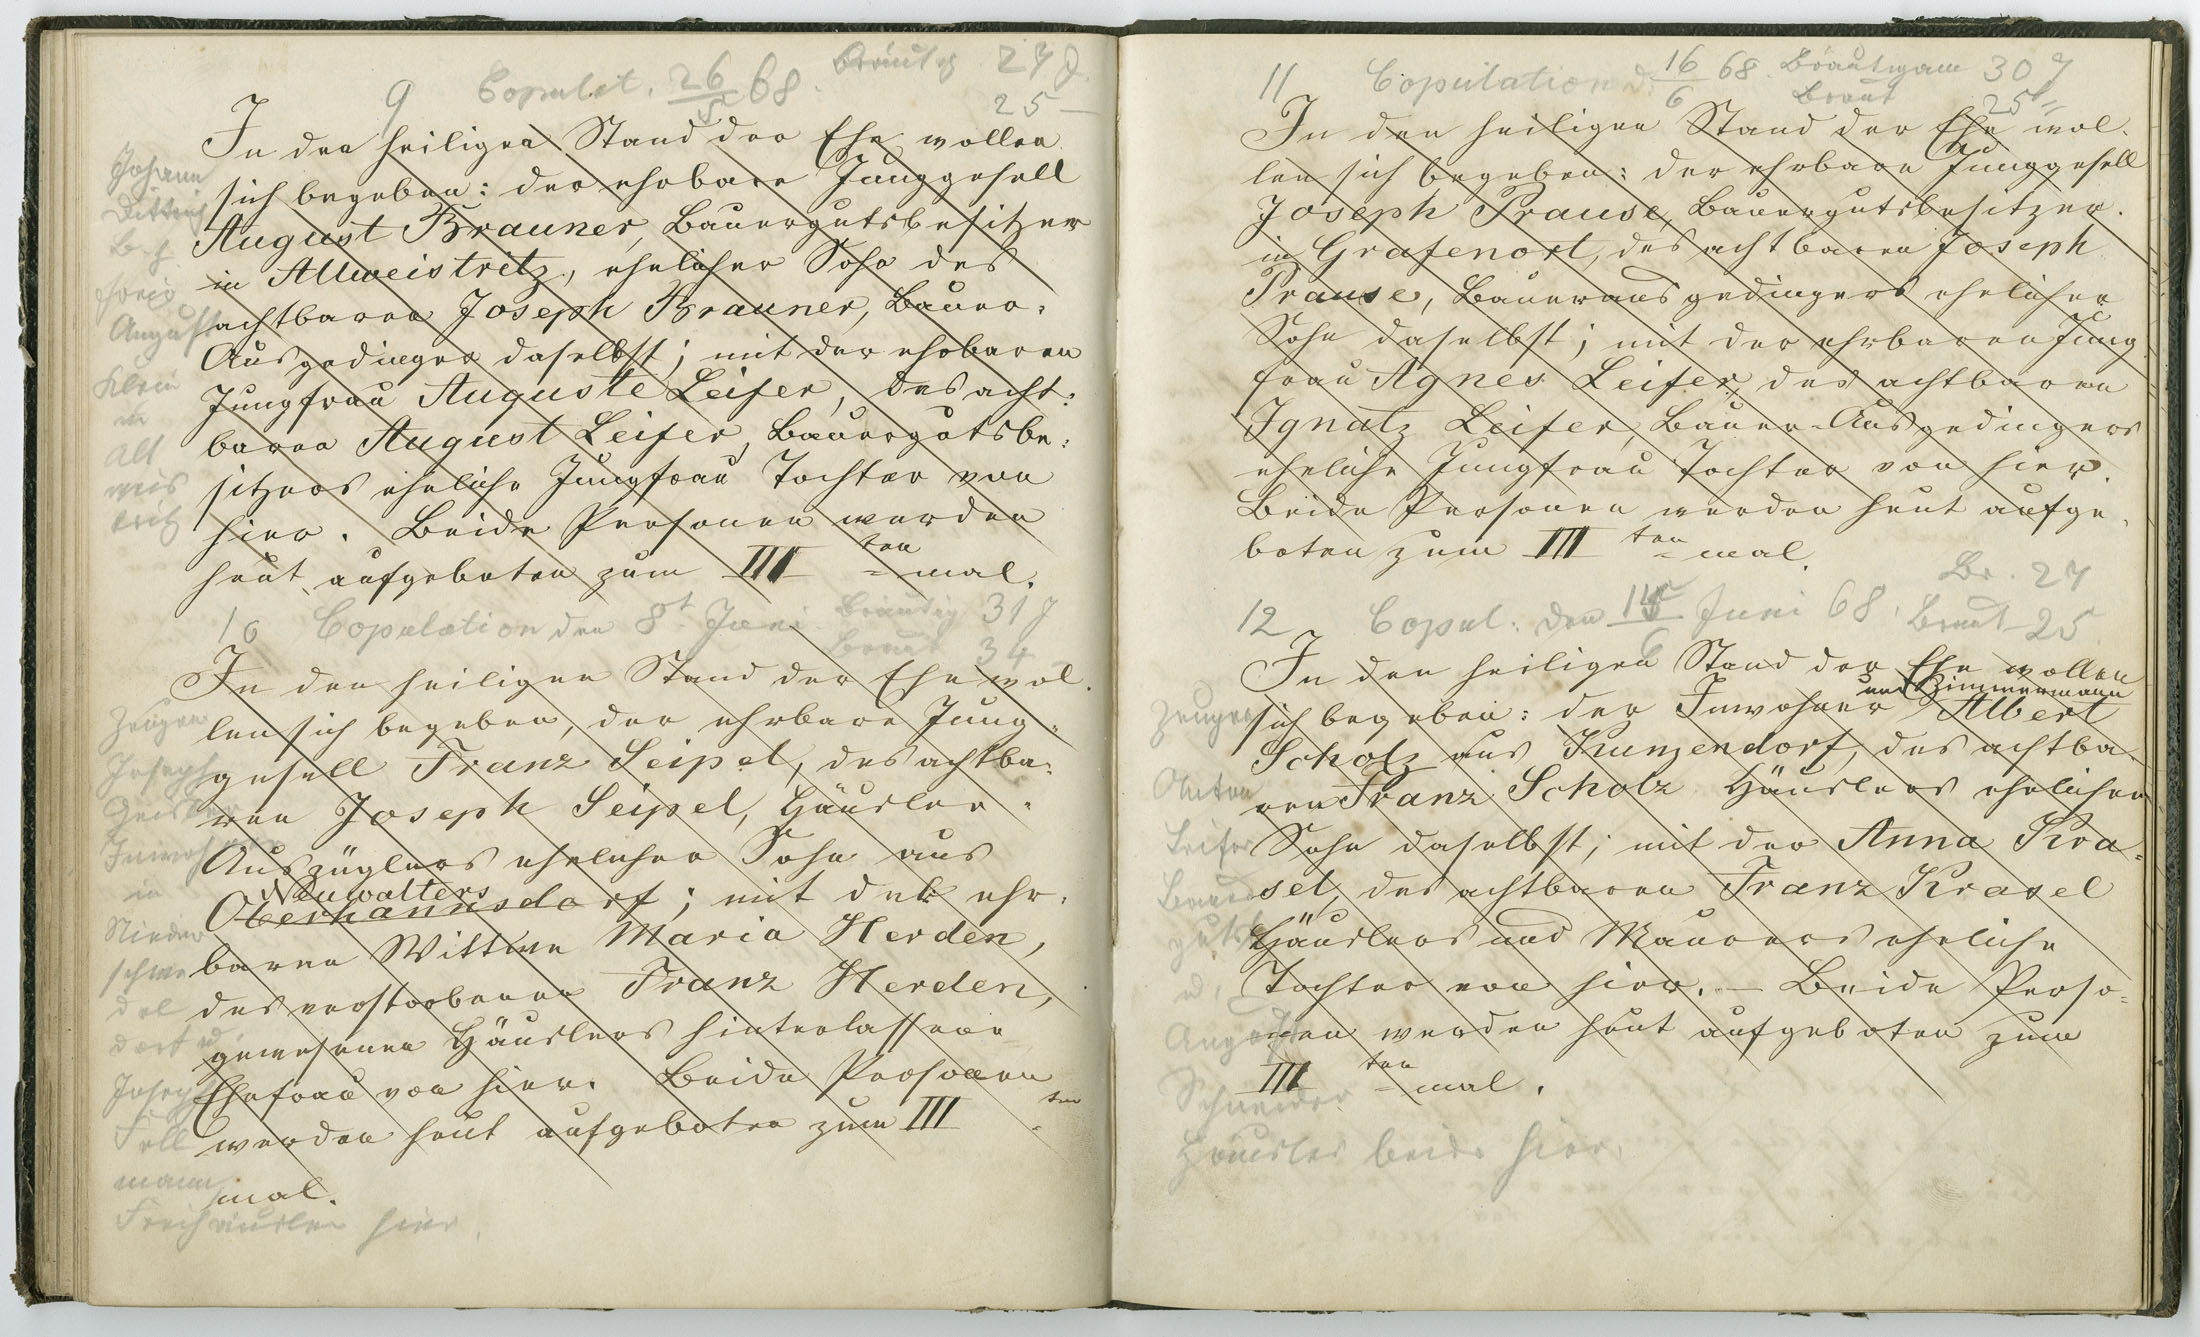 9 Copulat. 26/5 68. Bräutig 27 J.
25 —
In den heiligen Stand der Ehe wollen
sich begeben: der ehrbare Junggesell
August Brauner, Bauergutsbesitzer
in Altweistritz, ehelicher Sohn des
achtbaren Joseph Brauner, Bauer-
Ausgedinger daselbst; mit der ehrbaren
Jungfrau Auguste Leifer, des acht-
baren August Leifer, Bauergutsbe-
sitzers eheliche Jungfrau Tochter von
hier. Beide Personen werden
heut aufgeboten zum III ten mal.
Johann
Dittrich
August
Klein
in
Alt
weis
tritz
10 Copulation den 8t Juni Bräutig 31 J
Braut 34
In den heiligen Stand der Ehe wol-
len sich begeben, der ehrbare Jung-
gesell Franz Seipel, des achtba-
ren Joseph Seipel, Häusler-
Auszüglers ehelicher Sohn aus
Neuwalters
Oberhannsdorf; mit der ehr-
baren Wittwe Maria Herden,
des verstorbenen Franz Herden,
gewesenen Häuslers hinterlassene
Ehefrau von hier. Beide Personen
werden heut aufgeboten zum III ten
mal.
Zeugen
Joseph
Geisler
Inwohner
in
Nieder
schwe
del
dorf u.
Joseph
Fell
mann
Freihäusler hier.
11 Copulation d. 16/6 68. Bräutigam 30 J
Braut 25 "
In den heiligen Stand der Ehe wol-
len sich begeben: der ehrbare Junggesell
Joseph Prause, Bauergutsbesitzer
in Grafenort, des achtbaren Joseph
Prause, Bauerausgedingers ehelicher
Sohn daselbst; mit der ehrbaren Jung
frau Agnes Leifer, des achtbaren
Ignatz Leifer, Bauer-Ausgedingers
eheliche Jungfrau Tochter von hier.
Beide Personen werden heut aufge-
boten zum III ten mal.
Br. 27
12 Copul: den 15/6 Juni 68. Braut 25
In den heiligen Stand der Ehe wollen
und Zimmermann
sich begeben: der Inwohner Albert
Scholz aus Kunzendorf, des achtba-
ren Franz Scholz Häuslers ehelicher
Sohn daselbst; mit der Anna Kra-
sel, des achtbaren Franz Krasel
Häuslers und Maurers eheliche
Tochter von hier. — Beide Perso-
nen werden heut aufgeboten zum
III ten mal.
Zeugen
Anton
Leifer
Bauer
gutsb
u.
August
Schneider
Häusler beide hier.